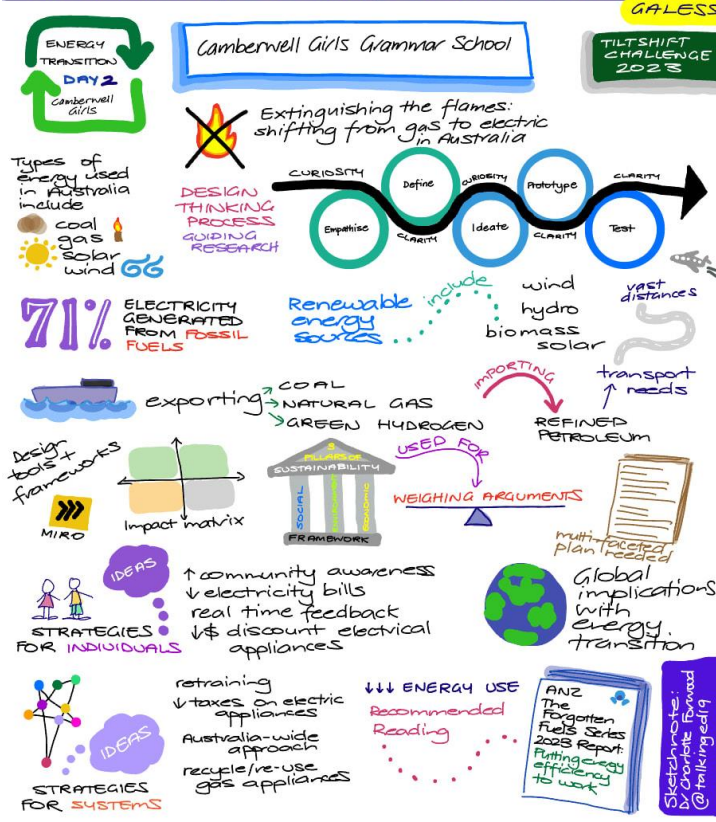 GALESS
ENERGY
TRANSITION
DAY 2
Camberwell
Girls
Camberwell Girls Grammar School
TILTSHIFT
CHALLENGE
2023
Extinguishing the flames:
shifting from gas to electric
in Australia
Types of
energy used
in Australia
include
coal
gas
solar
wind
DESIGN
THINKING
PROCESS
GUIDING
RESEARCH
CURIOSITY
Empathise
Define
CLARITY
CURIOSITY
Ideate
Prototype
CLARITY
CLARITY
Test
71%
ELECTRICITY
GENERATED
FROM FOSSIL
FUELS
Renewable
energy
sources
include
wind
hydro
biomass
solar
vast
distances
transport
needs
exporting
COAL
NATURAL GAS
GREEN HYDROGEN
IMPORTING
REFINED
PETROLEUM
Design
tools +
frameworks
MIRO
Impact matrix
3
PILLARS OF
SUSTAINABILITY
SOCIAL
ENVIRONMENT
ECONOMIC
FRAMEWORK
USED FOR
WEIGHING ARGUMENTS
multi-faceted
plan needed
IDEAS
STRATEGIES
FOR INDIVIDUALS
↑ community awareness
↓ electricity bills
real time feedback
↓$ discount electrical
appliances
Global
implications
with
energy
transition
IDEAS
STRATEGIES
FOR SYSTEMS
retraining
↓ taxes on electric
appliances
Australia-wide
approach
recycle/re-use
gas appliances
↓↓↓ ENERGY USE
Recommended
Reading
ANZ
The
Forgotten
Fuels Series
2023 Report:
Putting energy
efficiency
to work
Sketchnote:
Dr Charlotte Forwood
@talkinged19